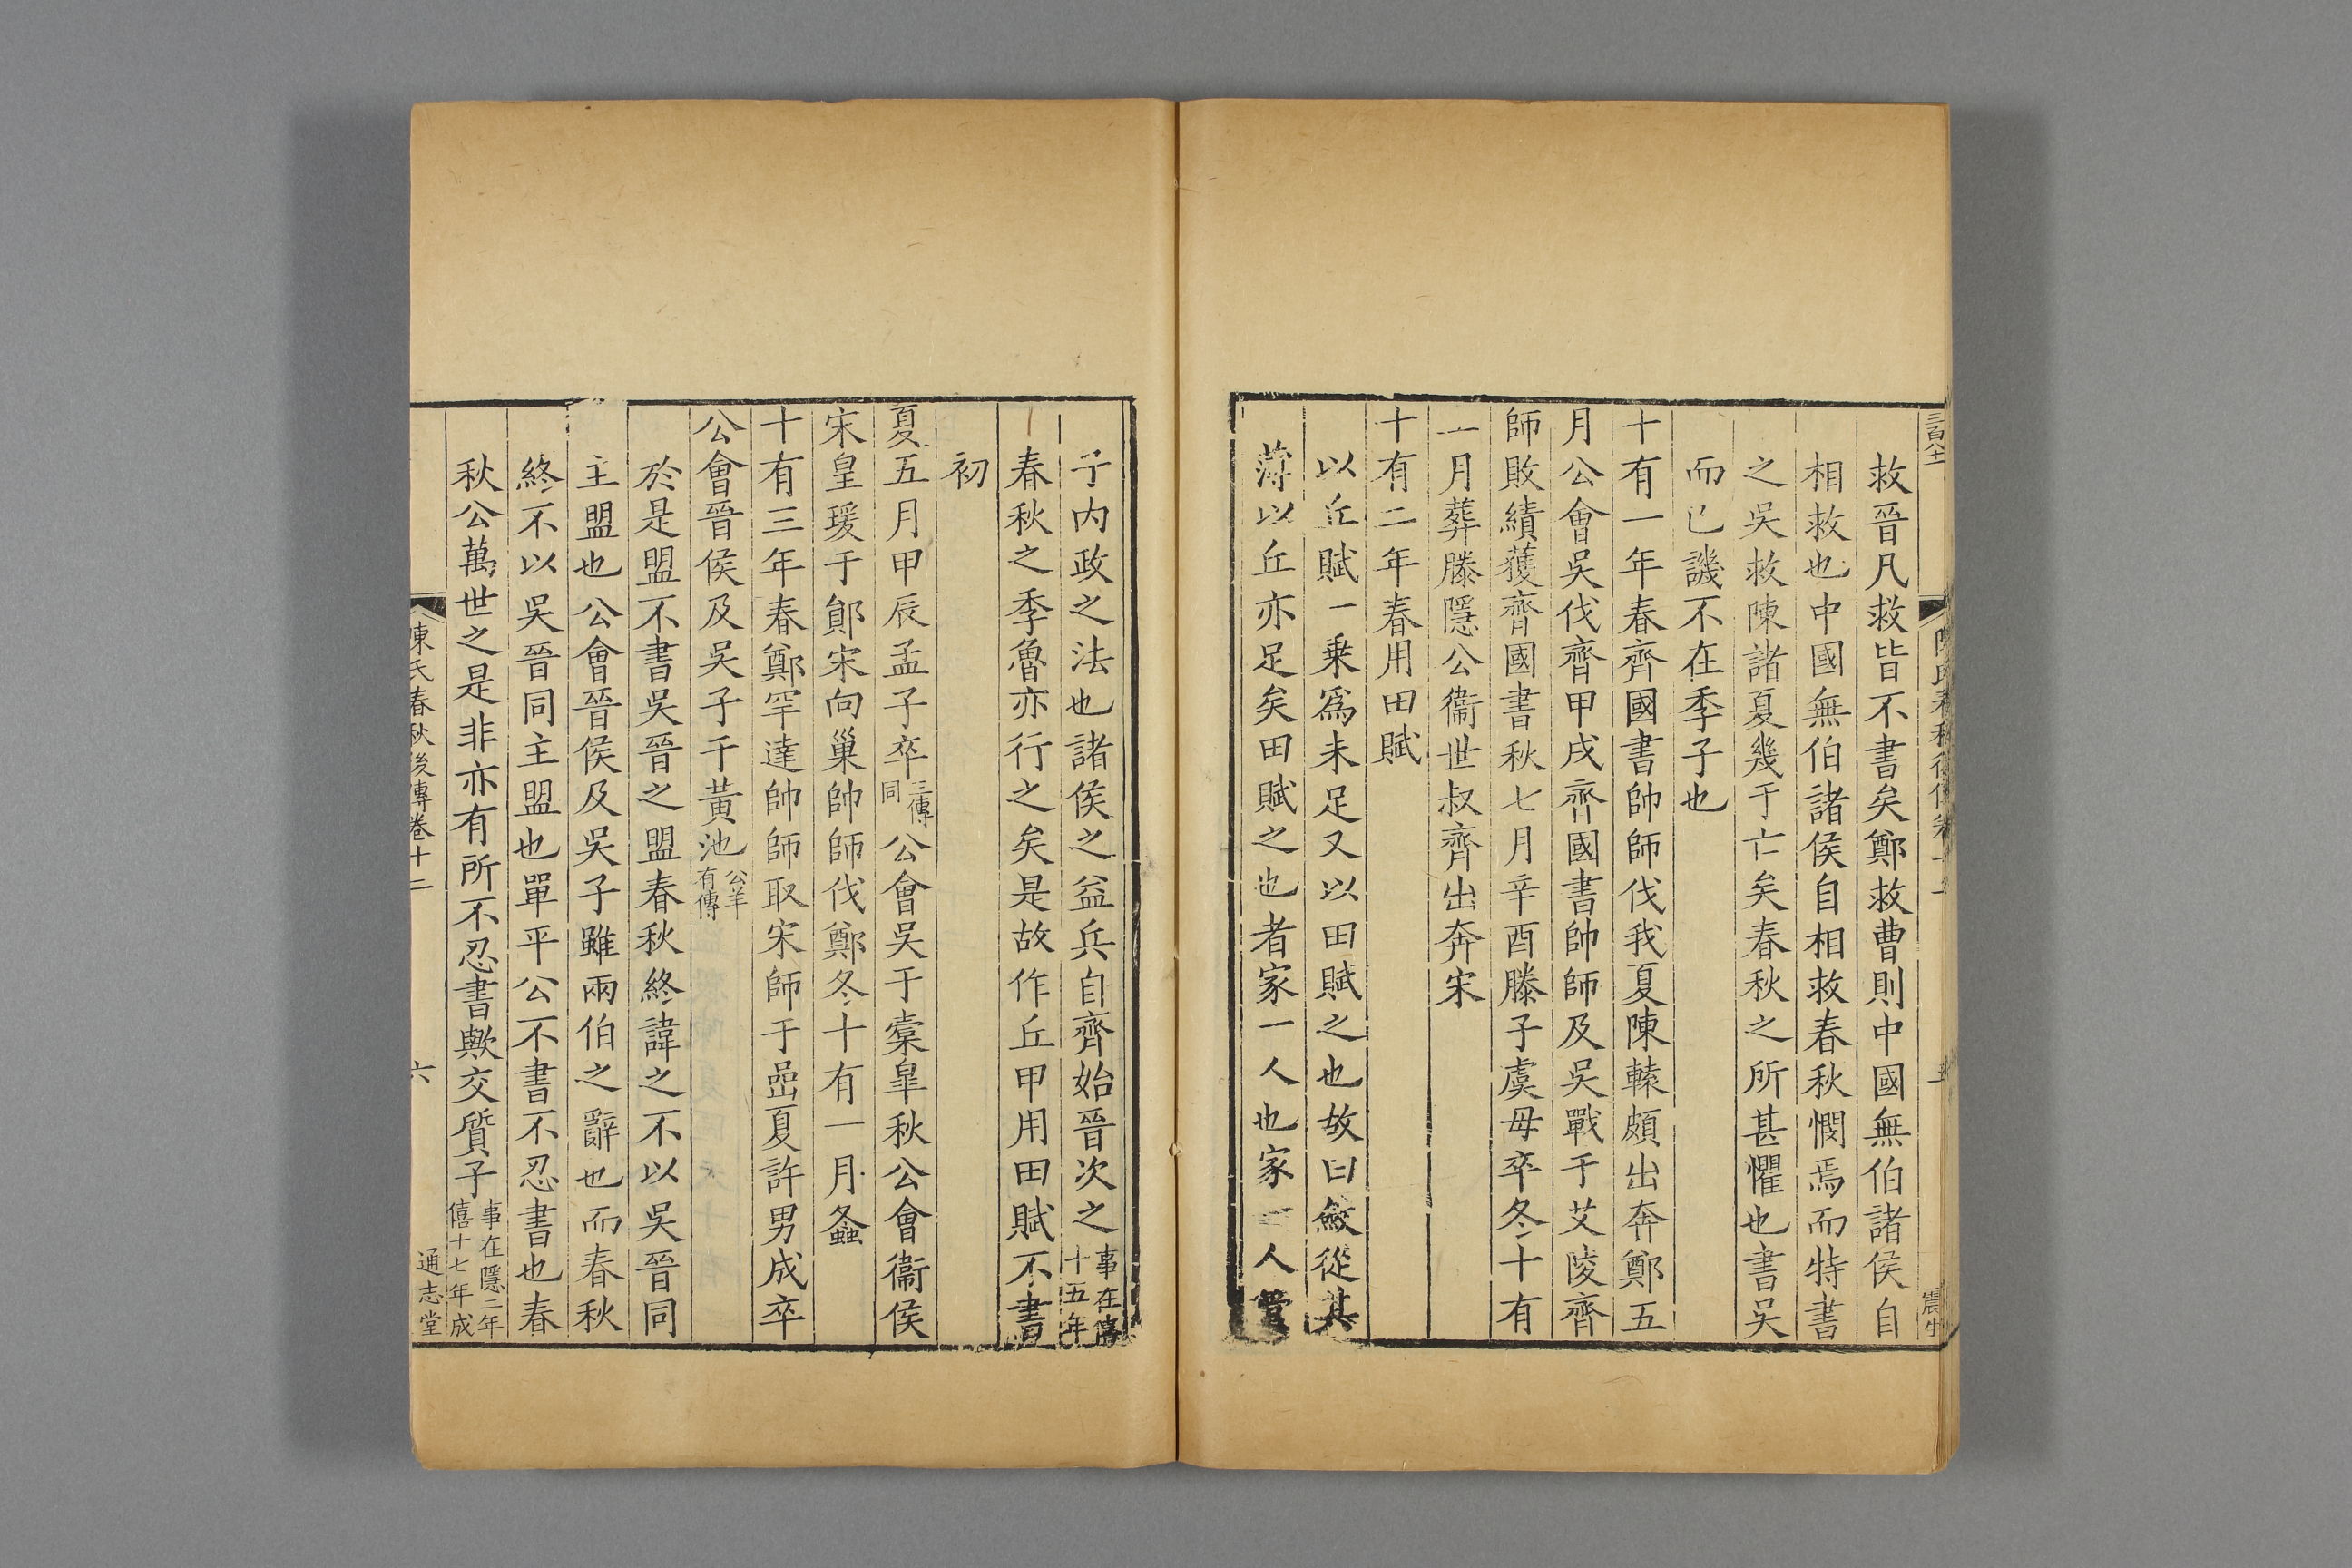 三百八十
救晉凡救皆不書矣鄭救曹則中國無伯諸侯自
相救也中國無伯諸侯自相救春秋憫焉而特書
之吳救陳諸夏幾于亡矣春秋之所甚懼也書吳
而已譏不在季子也
十有一年春齊國書帥師伐我夏陳轅頗出奔鄭五
月公會吳伐齊甲戌齊國書帥師及吳戰于艾陵齊
師敗績獲齊國書秋七月辛酉滕子虞母卒冬十有
一月葬滕隱公衞世叔齊出奔宋
十有二年春用田賦
以丘賦一乗爲未足又以田賦之也故曰斂從其
薄以丘亦足矣田賦之也者家一人也家一人
子内政之法也諸侯之益兵自齊始晉次之事在僖十五年
春秋之季魯亦行之矣是故作丘甲用田賦不書
初
夏五月甲辰孟子卒三傳同公會吳于橐臯秋公會衞侯
宋皇瑗于鄖宋向巢帥師伐鄭冬十有一月螽
十有三年春鄭罕達帥師取宋師于嵒夏許男成卒
公會晉侯及吳子于黃池公羊有傳
於是盟不書吳晉之盟春秋終諱之不以吳晉同
主盟也公會晉侯及吳子雖兩伯之辭也而春秋
終不以吳晉同主盟也單平公不書不忍書也春
秋公萬世之是非亦有所不忍書歟交質子事在隱二年僖十七年成
陳氏春秋後傳卷十二
六
通志堂